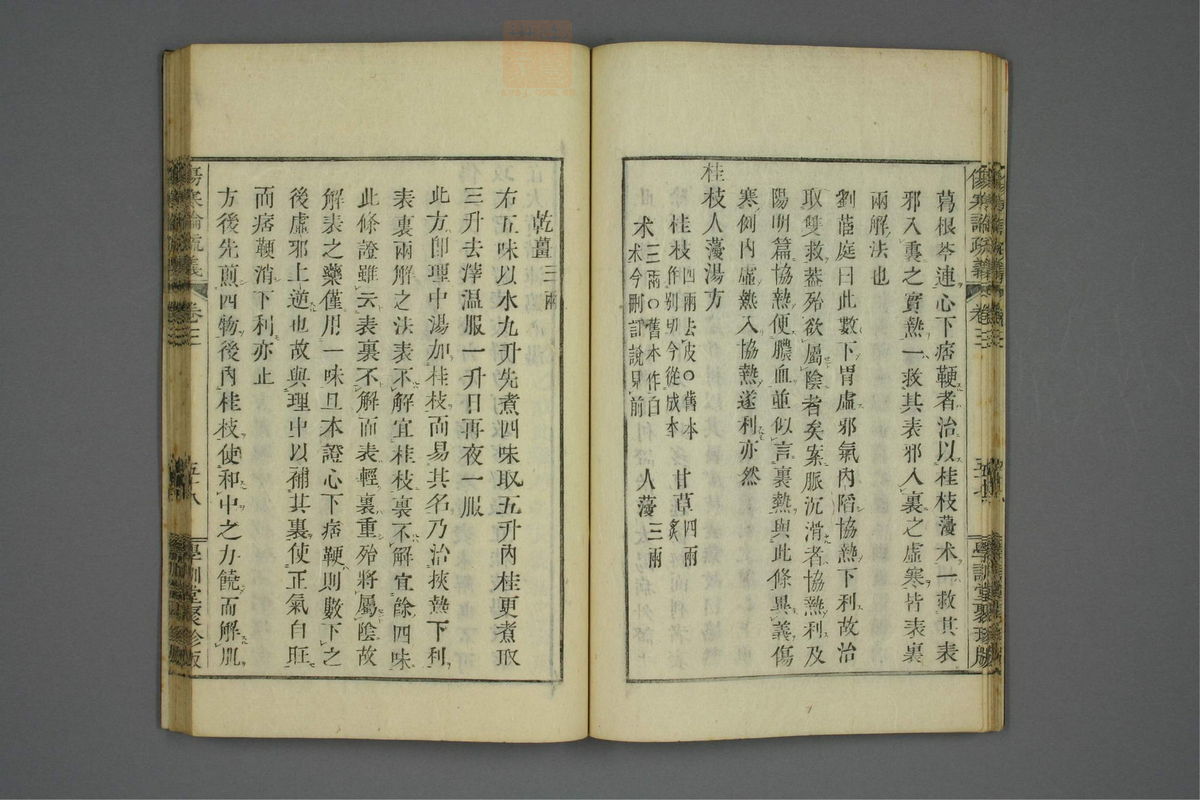 葛根芩連心下痞鞕者治以桂枝薓术一救其表
邪入裏之實熱一救其表邪入裏之虛寒皆表裏
兩解法也
劉茝庭曰此數下胃虛邪氣內陷協熱下利故治
取雙救葢殆欲屬陰者矣案脈沉滑者協熱利及
陽明篇協熱便膿血並似言裏熱與此條異義傷
寒例內虛熱入協熱遂利亦然
桂枝人薓湯方
桂枝四兩去皮○舊本作別切今從成本 甘草四兩炙
术三兩○舊本作白术今刪訂說見前 人薓三兩
傷寒論疏義 卷三 五十七 學訓堂聚珍版
乾薑三兩
右五味以水九升先煮四味取五升內桂更煮取
三升去滓温服一升日再夜一服
此方卽理中湯加桂枝而易其名乃治挾熱下利
表裏兩解之法表不解宜桂枝裏不解宜餘四味
此條證雖云表裏不解而表輕裏重殆將屬陰故
解表之藥僅用一味且本證心下痞鞕則數下之
後虛邪上逆也故與理中以補其裏使正氣自旺
而痞鞕消下利亦止
方後先煎四物後內桂枝使和中之力饒而解肌
傷寒論疏義 卷三 五十八 學訓堂聚珍版